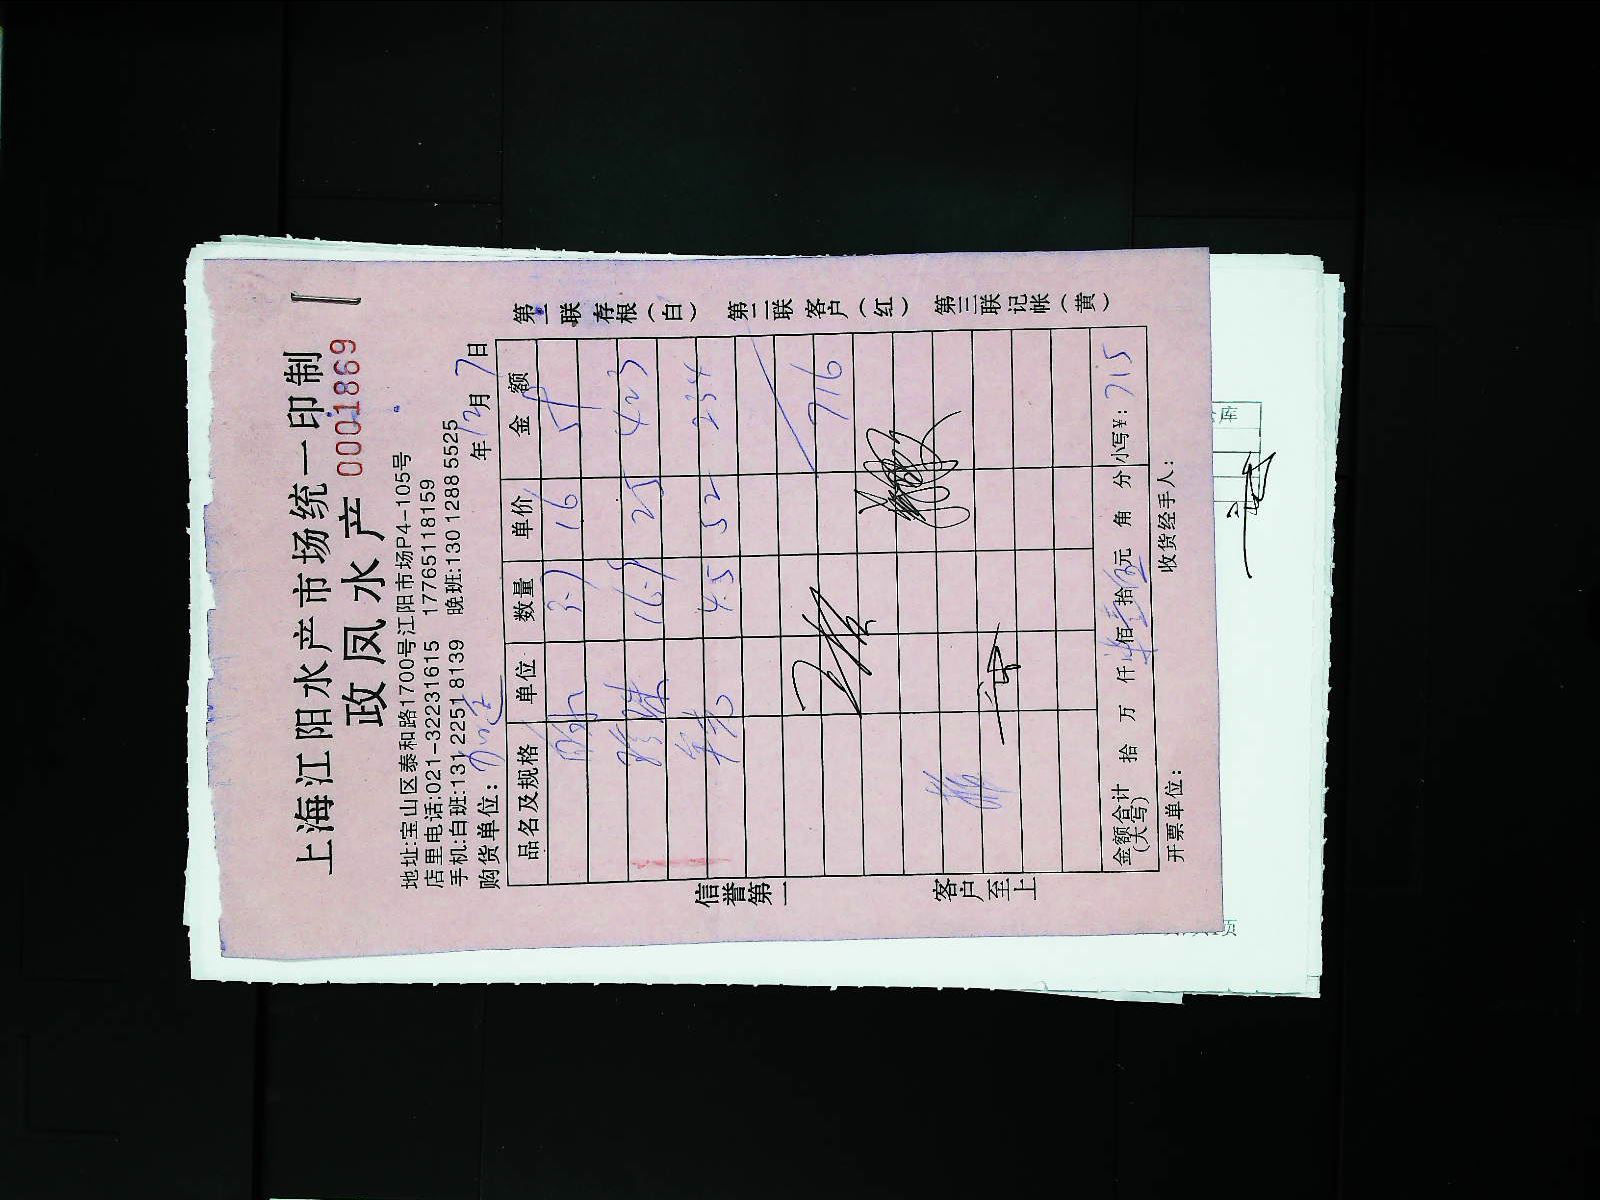 上海江阳水产市场统一印制
政凤水产 0001869
地址:宝山区泰和路1700号江阳市场P4-105号
店里电话:021-32231615 17765118159
手机:白班:131 2251 8139 晚班:130 1288 5525
购货单位: 年12月7日
品名及规格 单位 数量 单价 金额
3.7 16 59
珍珠 16.9 25 423
4.5 52 234
716
金额合计(大写) 拾 万 仟 柒佰壹拾伍元 角 分 小写¥: 715
开票单位: 收货经手人:
第一联存根(白) 第二联客户(红) 第三联记帐(黄)
信誉第一 客户至上